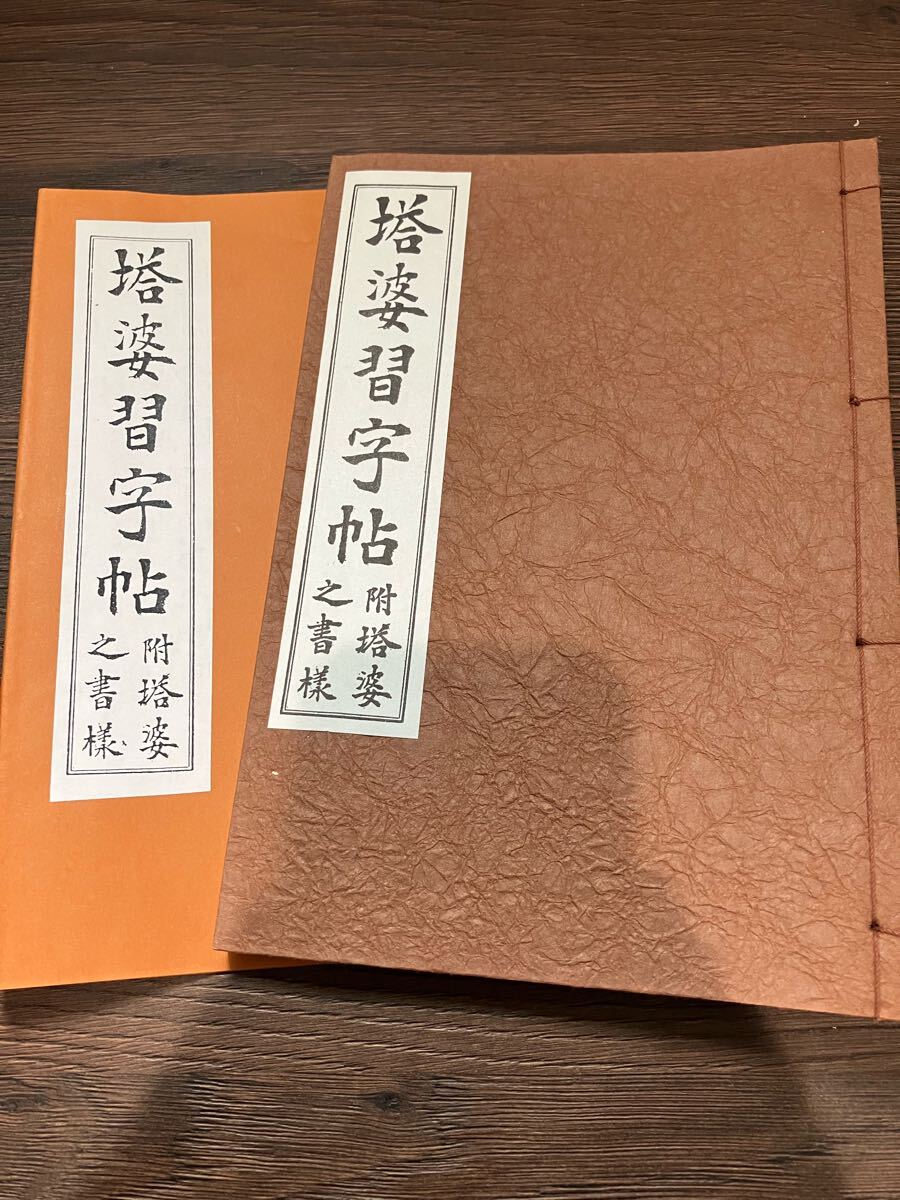 塔婆習字帖
附塔婆
之書樣
塔婆習字帖
附塔婆
之書樣